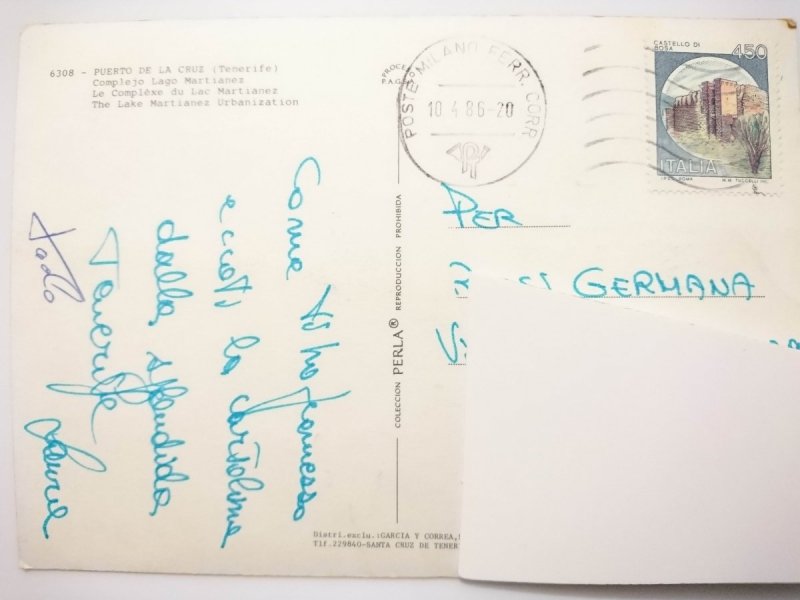 6308 - PUERTO DE LA CRUZ (Tenerife)
Complejo Lago Martianez
Le Complèxe du Lac Martianez
The Lake Martianez Urbanization
PROCE
P.A.G
POSTE MILANO FERR. CORR.
10 4 86-20
CASTELLO DI
ROSA
450
ITALIA
Come ti ho promesso
eccoti la cartolina
dalla splendida
Tenerife
PER
GERMANA
COLECCION PERLA® REPRODUCCION PROHIBIDA
Distri.exclu.:GARCIA Y CORREA,S
Tlf.229840-SANTA CRUZ DE TENERI